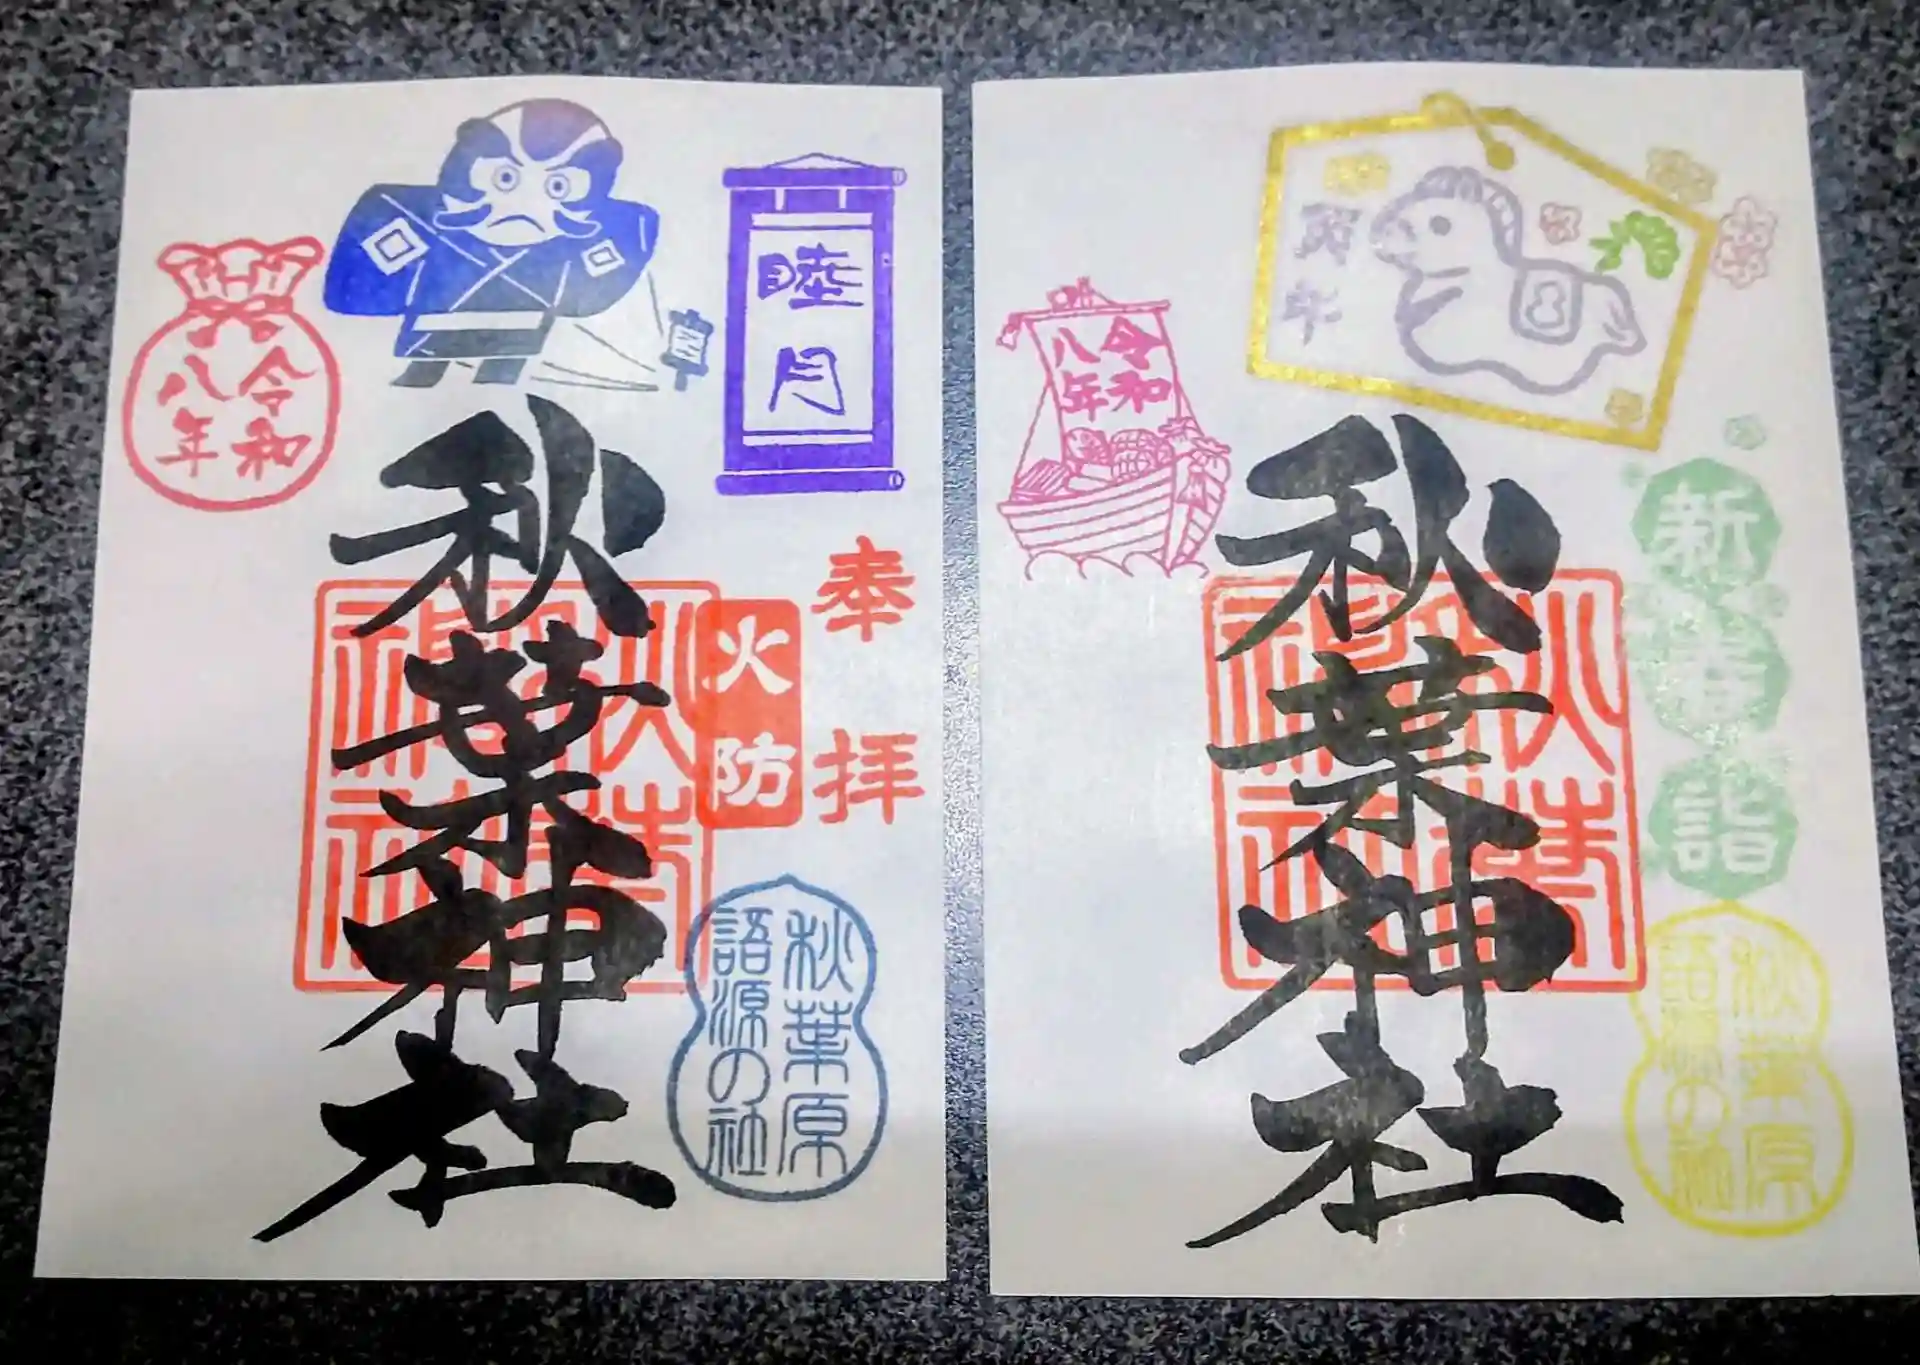 睦月
奉拝
火防
秋葉神社
令和
八年
秋葉原
語源の社
新春詣
秋葉神社
令和
八年
秋葉原
語源の社